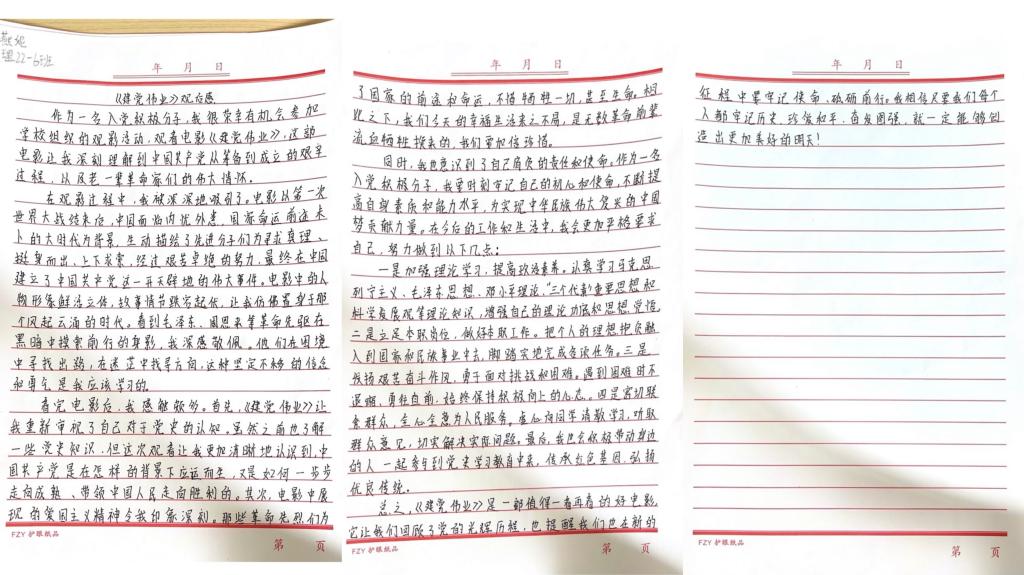 燕妮
理22-6班
年 月 日
《建党伟业》观后感
作为一名入党积极分子,我很荣幸有机会参加
学校组织的观影活动,观看电影《建党伟业》,这部
电影让我深刻理解到中国共产党从筹备到成立的艰辛
过程,以及老一辈革命家们的伟大情怀。
在观影过程中,我被深深地吸引了。电影以第一次
世界大战结束后,中国面临内忧外患,国家命运前途未
卜的大时代为背景,生动描绘了先进分子们为寻求真理、
挺身而出、上下求索,经过艰苦卓绝的努力,最终在中国
建立了中国共产党这一开天辟地的伟大事件。电影中的人
物形象鲜活立体,故事情节跌宕起伏,让我仿佛置身于那
个风起云涌的时代。看到毛泽东、周恩来等革命先驱在
黑暗中摸索前行的身影,我深感敬佩。他们在困境
中寻找出路,在迷茫中找寻方向,这种坚定不移的信念
和勇气是我应该学习的。
看完电影后,我感触颇多。首先,《建党伟业》让
我重新审视了自己对于党史的认知,虽然之前也了解
一些党史知识,但这次观看让我更加清晰地认识到,中
国共产党是在怎样的背景下应运而生,又是如何一步步
走向成熟、带领中国人民走向胜利的。其次,电影中展
现的爱国主义精神令我印象深刻。那些革命先烈们为
FZY 护眼纸品
第 页
年 月 日
了国家的前途和命运,不惜牺牲一切,甚至生命。相
比之下,我们今天的幸福生活来之不易,是无数革命前辈
流血牺牲换来的,我们要加倍珍惜。
同时,我也意识到了自己肩负的责任和使命。作为一名
入党积极分子,我要时刻牢记自己的初心和使命,不断提
高自身素质和能力水平,为实现中华民族伟大复兴的中国
梦贡献力量。在今后的工作和生活中,我会更加严格要求
自己,努力做到以下几点:
一是加强理论学习,提高政治素养。认真学习马克思
列宁主义、毛泽东思想、邓小平理论、“三个代表”重要思想和
科学发展观等理论知识,增强自己的理论功底和思想觉悟。
二是立足本职岗位,做好本职工作。把个人的理想抱负融
入到国家和民族事业中去,脚踏实地完成各项任务。三是
发扬艰苦奋斗作风,勇于面对挑战和困难。遇到困难时不
退缩、勇往直前,始终保持积极向上的心态。四是密切联
系群众,全心全意为人民服务。虚心向同学请教学习,听取
群众意见,切实解决实际问题。最后,我也会积极带动身边
的人一起参与到党史学习教育中来,传承红色基因,弘扬
优良传统。
总之,《建党伟业》是一部值得一看再看的好电影,
它让我们回顾了党的光辉历程,也提醒我们也在新的
FZY 护眼纸品
第 页
年 月 日
征程中要牢记使命、砥砺前行。我相信只要我们每个
人都牢记历史、珍惜和平、奋发图强,就一定能够创
造出更加美好的明天!
FZY 护眼纸品
第 页